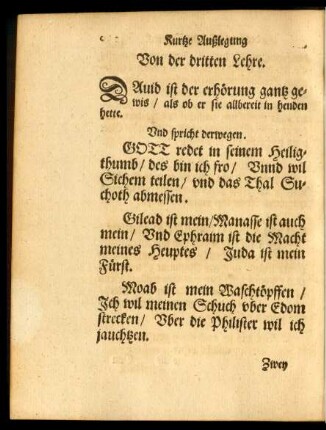 Kurtze Außlegung
Von der dritten Lehre.
DAuid ist der erhörung gantz ge-
wis / als ob er sie allbereit in henden
hette.
Vnd spricht derwegen.
GOTT redet in seinem Heilig-
thumb / des bin ich fro / Vnnd wil
Sichem teilen / vnd das Thal Su-
choth abmessen.
Gilead ist mein / Manasse ist auch
mein / Vnd Ephraim ist die Macht
meines Heuptes / Juda ist mein
Fürst.
Moab ist mein Waschtöpffen /
Ich wil meinen Schuch vber Edom
strecken / Vber die Philister wil ich
jauchtzen.
Zwey